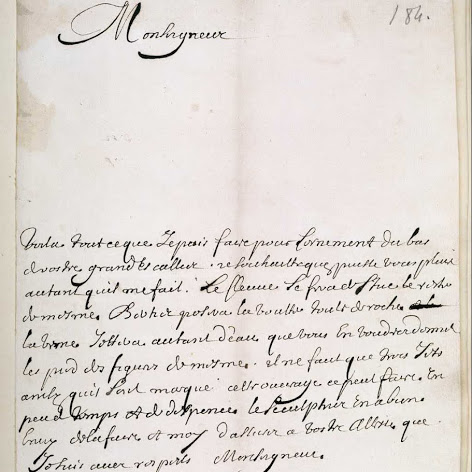 184.
Monseigneur
Voila tout ce que Je puis faire pour Lornement du bas
de vostre grand Escallier. Je souhaitte que puisse vous plaire
autant quil me fait. Le fleuve se fera de Stuc le reste
de mesme la voulte toute de roche
la Jettera autant d'eau que vous En voudrez donner
les pied des figures de mesme. il ne faut que trois Jets
quil sont marqué cette ouvrage ce peut faire En
peu de temps et de despence le Sculpteur En a
de la faire et moy a Vostre Altesse que
Je suis avec respect Monseigneur